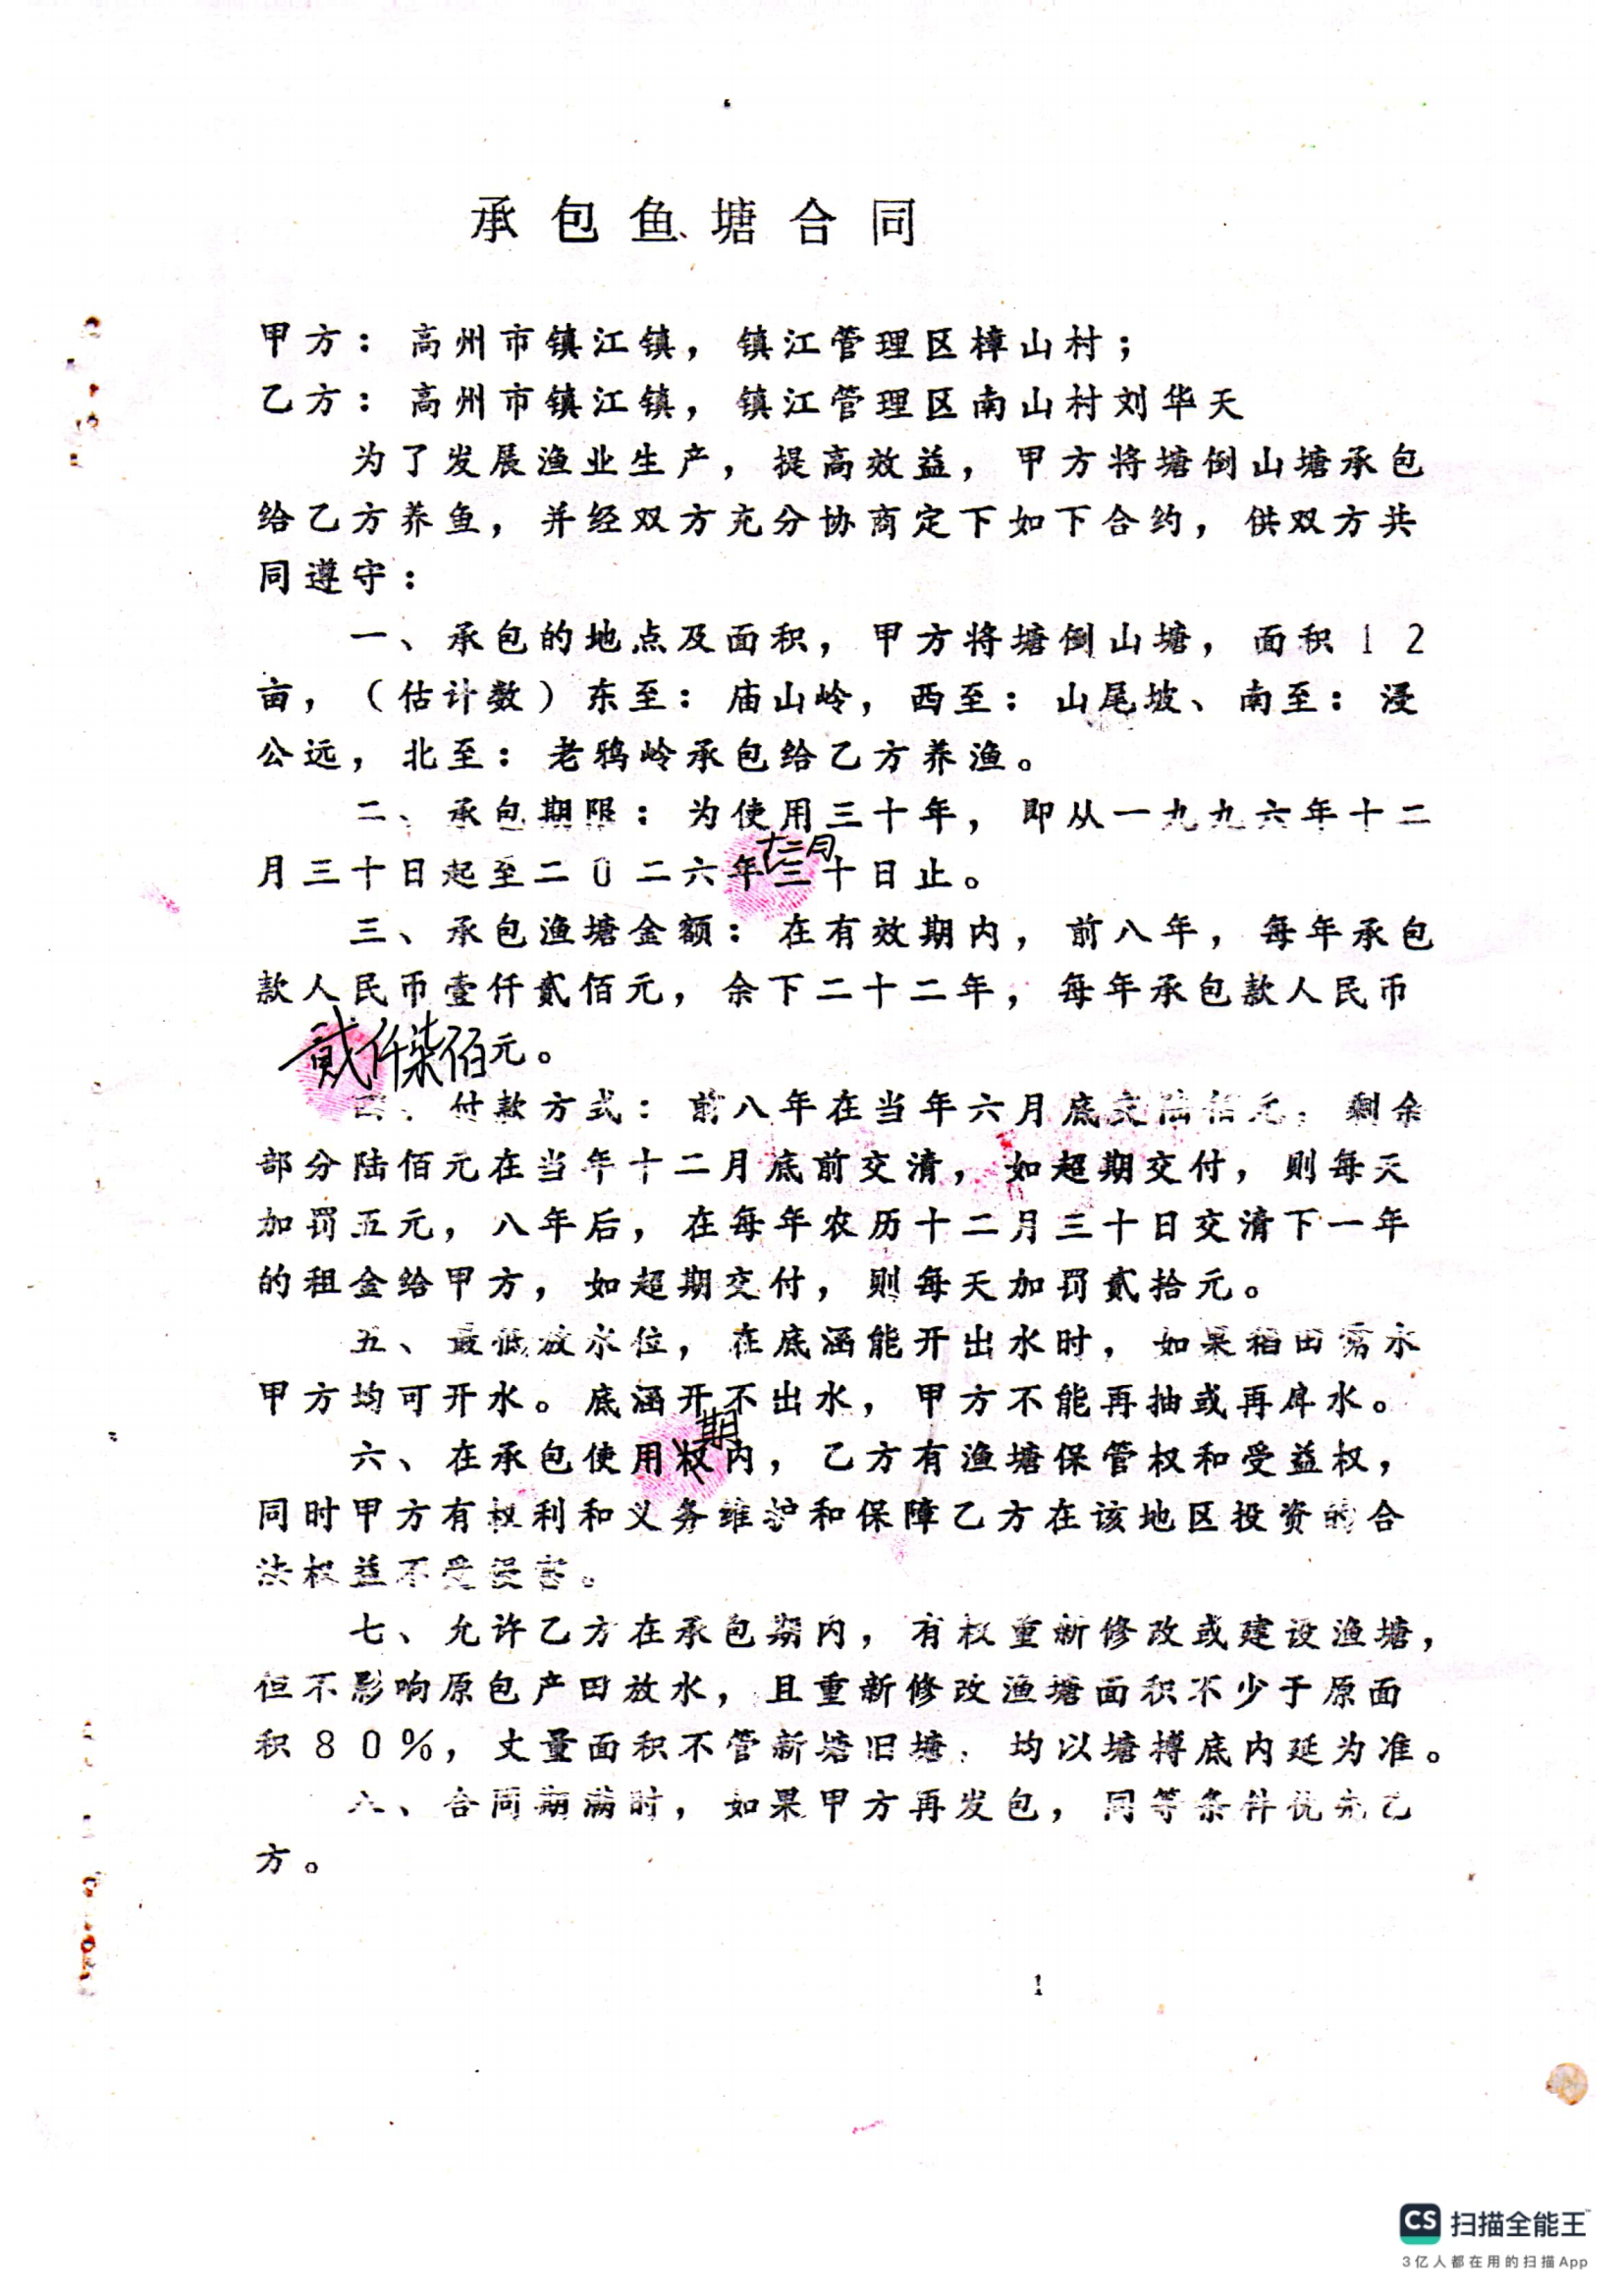 承包鱼塘合同
甲方：高州市镇江镇，镇江管理区樟山村；
乙方：高州市镇江镇，镇江管理区南山村刘华天
为了发展渔业生产，提高效益，甲方将塘倒山塘承包
给乙方养鱼，并经双方充分协商定下如下合约，供双方共
同遵守：
一、承包的地点及面积，甲方将塘倒山塘，面积12
亩，（估计数）东至：庙山岭，西至：山尾坡、南至：浸
公远，北至：老鸦岭承包给乙方养渔。
二、承包期限：为使用三十年，即从一九九六年十二
月三十日起至二0二六年十二月三十日止。
三、承包渔塘金额：在有效期内，前八年，每年承包
款人民币壹仟贰佰元，余下二十二年，每年承包款人民币
贰仟柒佰元。
四、付款方式：前八年在当年六月底交陆佰元，剩余
部分陆佰元在当年十二月底前交清，如超期交付，则每天
加罚五元，八年后，在每年农历十二月三十日交清下一年
的租金给甲方，如超期交付，则每天加罚贰拾元。
五、最低放水位，在底涵能开出水时，如果稻田需水
甲方均可开水。底涵开不出水，甲方不能再抽或再戽水。
六、在承包使用权期内，乙方有渔塘保管权和受益权，
同时甲方有权利和义务维护和保障乙方在该地区投资的合
法权益不受侵害。
七、允许乙方在承包期内，有权重新修改或建设渔塘，
但不影响原包产田放水，且重新修改渔塘面积不少于原面
积80%，丈量面积不管新塘旧塘，均以塘搏底内延为准。
八、合同期满时，如果甲方再发包，同等条件优先乙
方。
1
CS 扫描全能王
3亿人都在用的扫描App